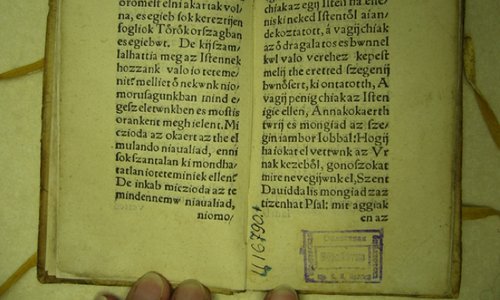 örömest elni akartak vol/
na, es egieb sok kereztijen
fogliok Törökorszagban
es egiebwt. De kij szam/
lalhattia meg az Istennek
hozzank valo io teteme/
nit? melliet ö nekwnk nio/
morusagunkban mind e/
gesz eletwnkben es mostis
orankent megh ielent. Mi
czioda az okaert az the el
mulando niaualiad, enni
sok szantalan ki mondha/
tatlan io teteminiek ellen?
De inkab miczioda az te
mindennemw niaualiad,
niomo/
chiak az egij Isten ha elle/
niski neked Istentöl aian/
dekoztatott, á vagij chiak
az ö dragalatos es bwnnel
kwl valo verehez kepest
melij the eretted szegenij
bwnösert, ki ontatotth, A
vagij penig chiak az Isten
igie ellen, Annakokaerth
twrij es mongiad az sze/
gin iambor Iobbal: Hogij
ha iokat el vettwnk az Vr
nak kezeböl, gonoszokat
mire ne vegijwnkel, Szent
Dauiddal is mongiad az
tizenhat Psal: mit aggiak
en az
416790.